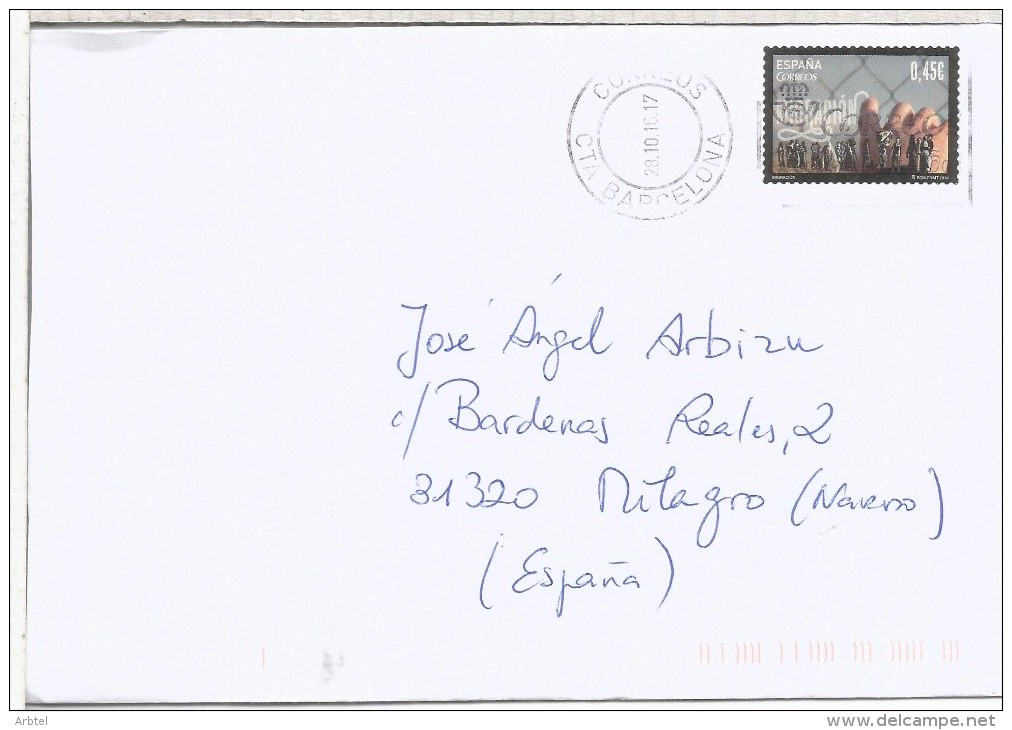 ESPAÑA
CORREOS
0,45€
CORREOS
28.10.16.17
CTA BARCELONA
José Ángel Arbizu
c/ Bardenas Reales, 2
31320 Milagro (Navarra)
(España)
Arbtel
www.delcampe.net